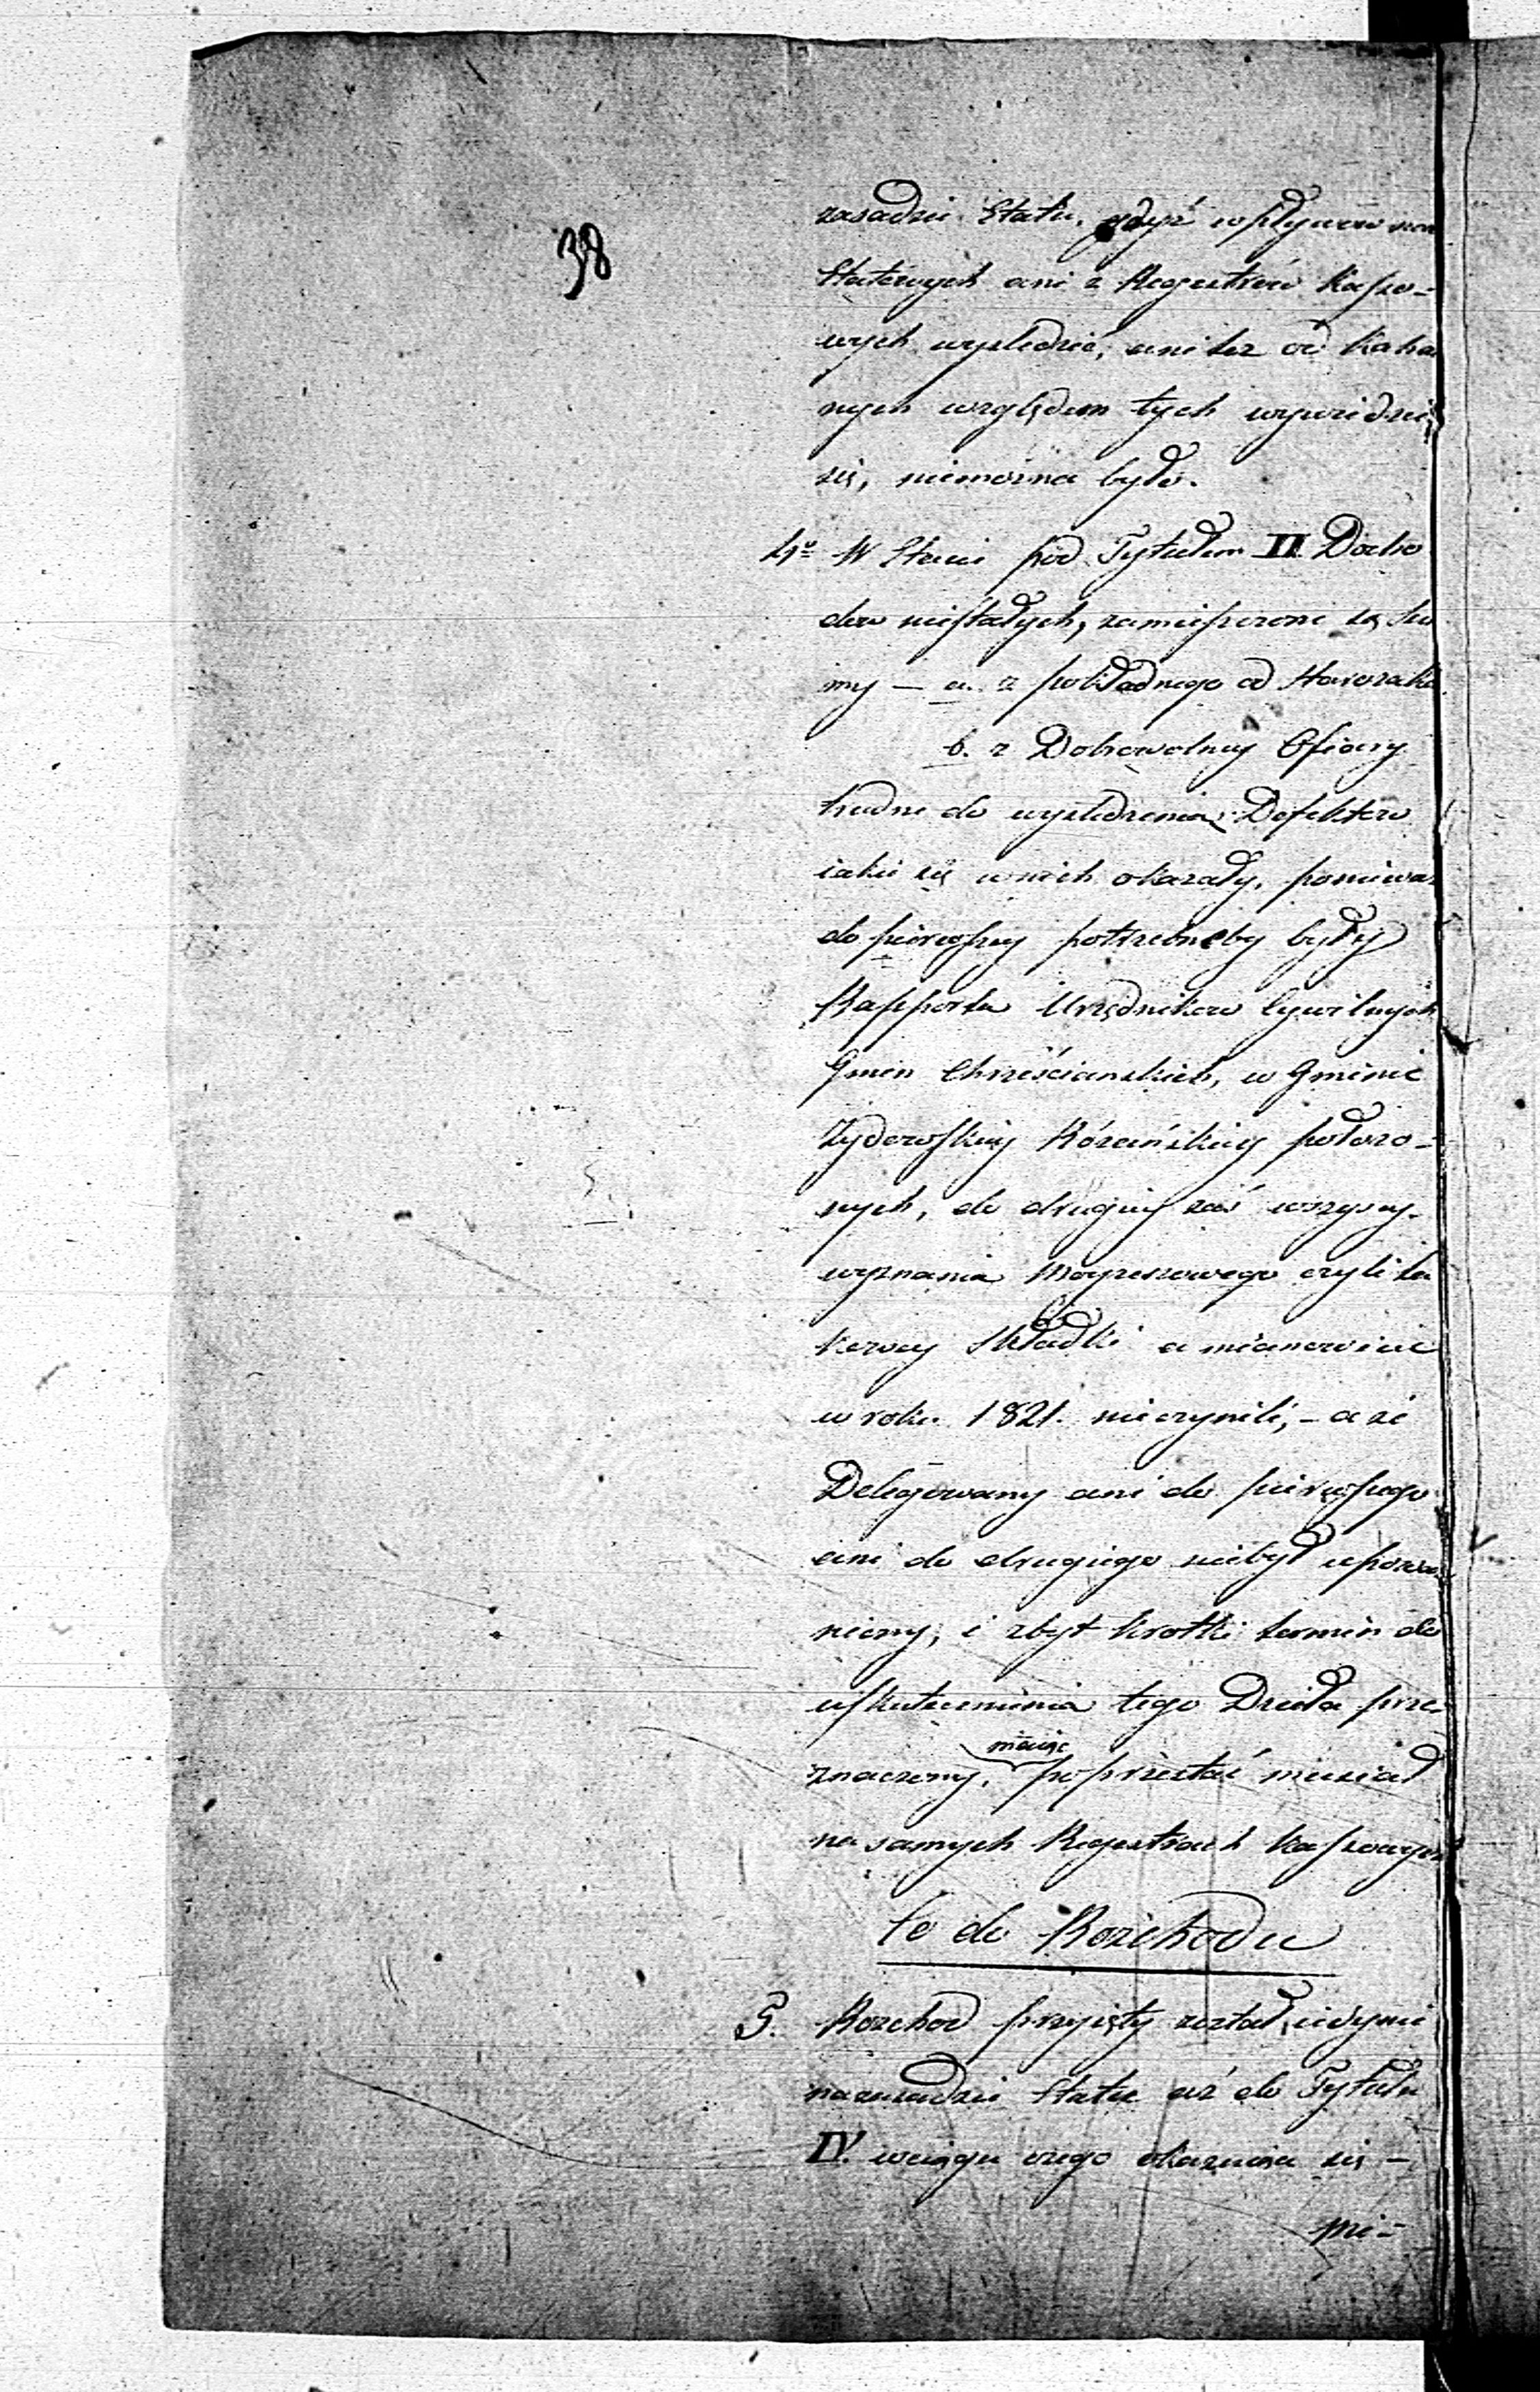 38
zasadzie Etatu, gdyż wpływow nie
Etatowych ani z Regestrów Kasso-
wych wyśledzić, ani też od Kahal
nych względem tych wywiedzieć
się, niemożna było.
4to W Etacie pod Tytułem II Docho
dow niestałych, zamieszczone są Su
my — a. z pokładnego od Starozak
b. z Dobrowolney Ofiary
trudne do wyśledzenia Defektow
iakie się w nich okazały, poniewaz
do pierwszey potrzebneby były
Rapporta Urzędnikow Cywilnych
Gmin Chrześcianskich, w Gminie
Żydowskiey Różańskiey położo-
nych, do drugiey zaś wszyscy
wyznania Moyżeszowego czyli ta
kowey Składki a mianowicie
w roku 1821. nieczynili, – a że
Delegowany ani do pierwszego
ani do drugiego niebył upoważ
niony, i zbyt krotki termin do
uskutecznienia tego Dzieła prze-
maiąc
znaczony, poprzestać musiał
na samych Regestrach Kassowych
Co do Rozchodu
5. Rozchod przyięty został iedynie
na zasadzie Etatu aż do Tytułu
IV. wciągu czego okazuie się –
mi-